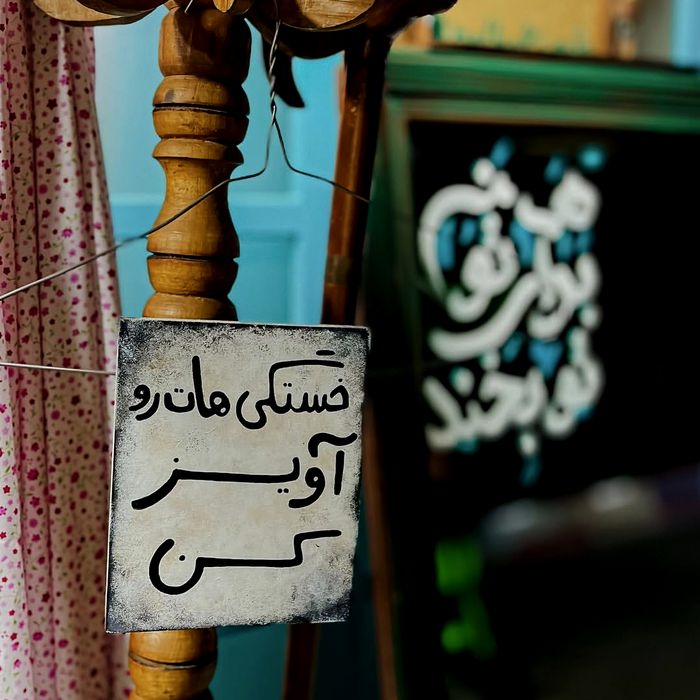 خستگی هات رو
آویز
کن
هی من
برای تو
تو بخند